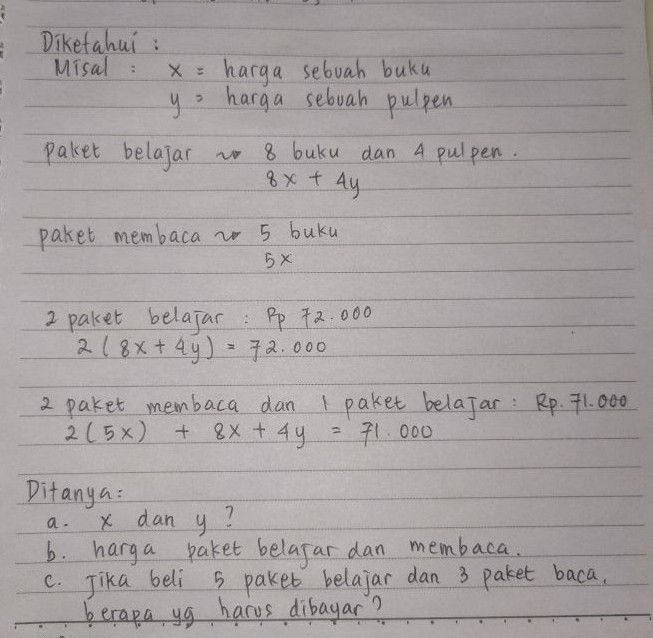 Diketahui :
Misal : x = harga sebuah buku
y = harga sebuah pulpen
paket belajar ~> 8 buku dan 4 pulpen.
8x + 4y
paket membaca ~> 5 buku
5x
2 paket belajar : Rp 72.000
2 ( 8x + 4y ) = 72.000
2 paket membaca dan 1 paket belajar : Rp. 71.000
2 ( 5x ) + 8x + 4y = 71.000
Ditanya :
a. x dan y ?
b. harga paket belajar dan membaca.
c. Jika beli 5 paket belajar dan 3 paket baca,
berapa yg harus dibayar ?